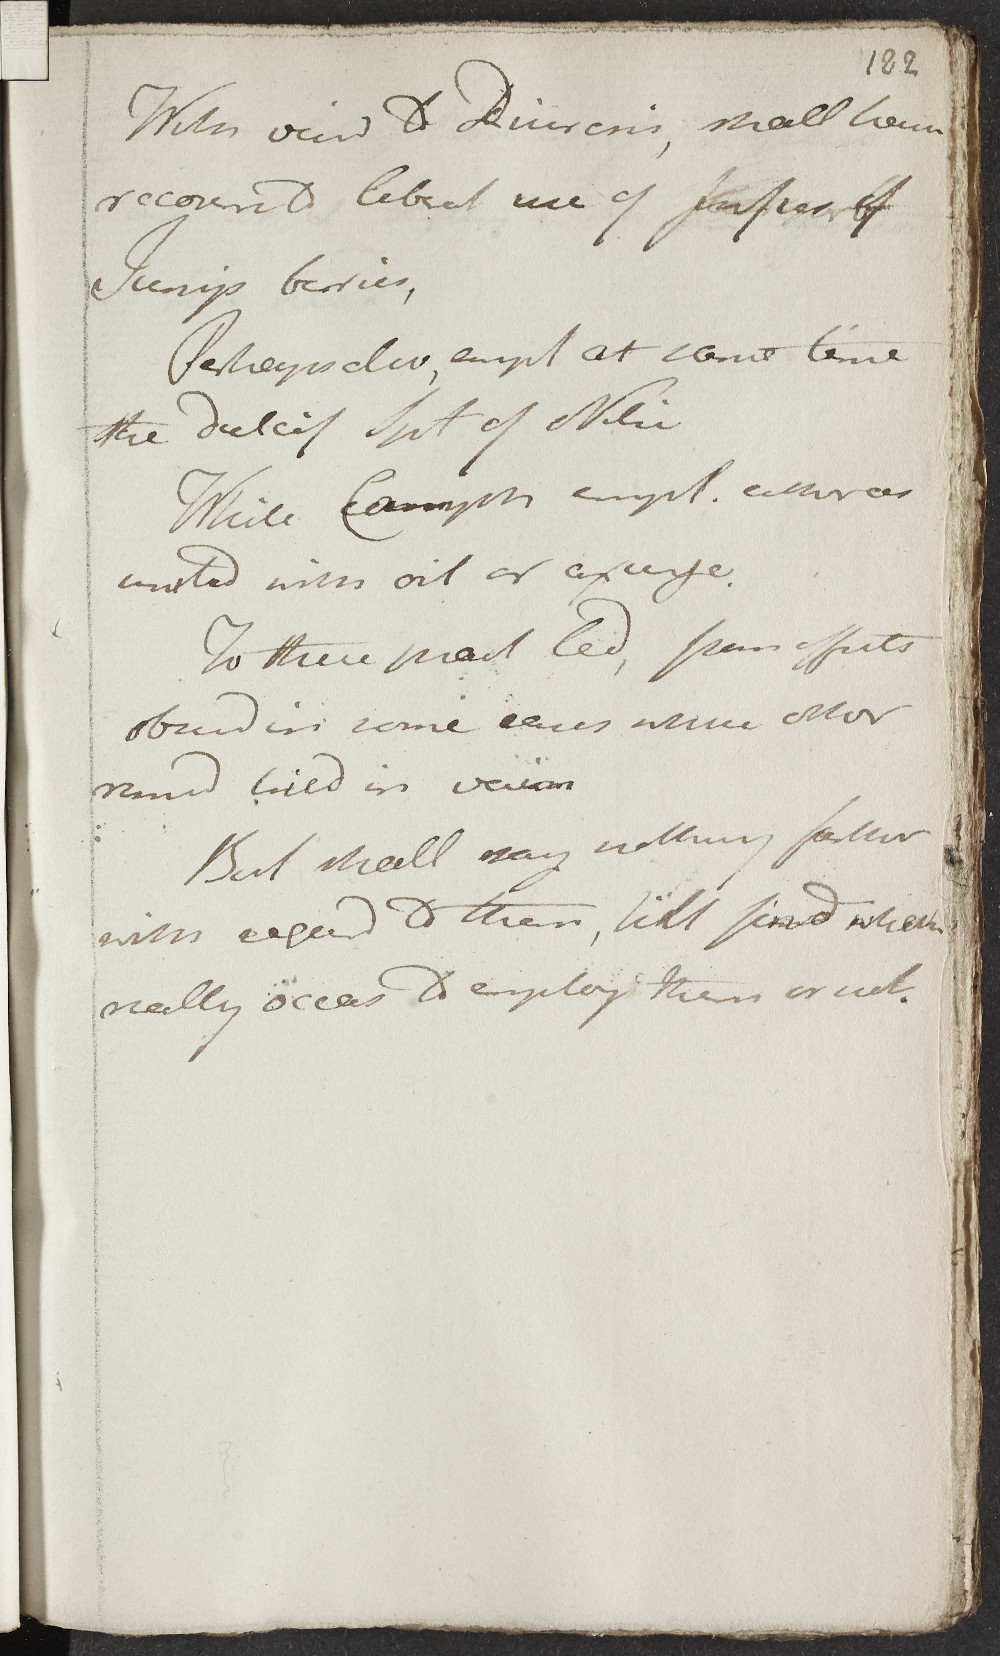 182
With view to Diuresis, shall have
recourse to liberal use of Infus of
Junip berries,
Perhaps also, empl at same time
the dulcif Spt of Nitre
While Camph empl. extern as
united with oil or axunge.
To these pract led, from effects
obserd in some cases where other
remed tried in vain
But shall say nothing farther
with regard to them, till find whether
really occas to employ them or not.